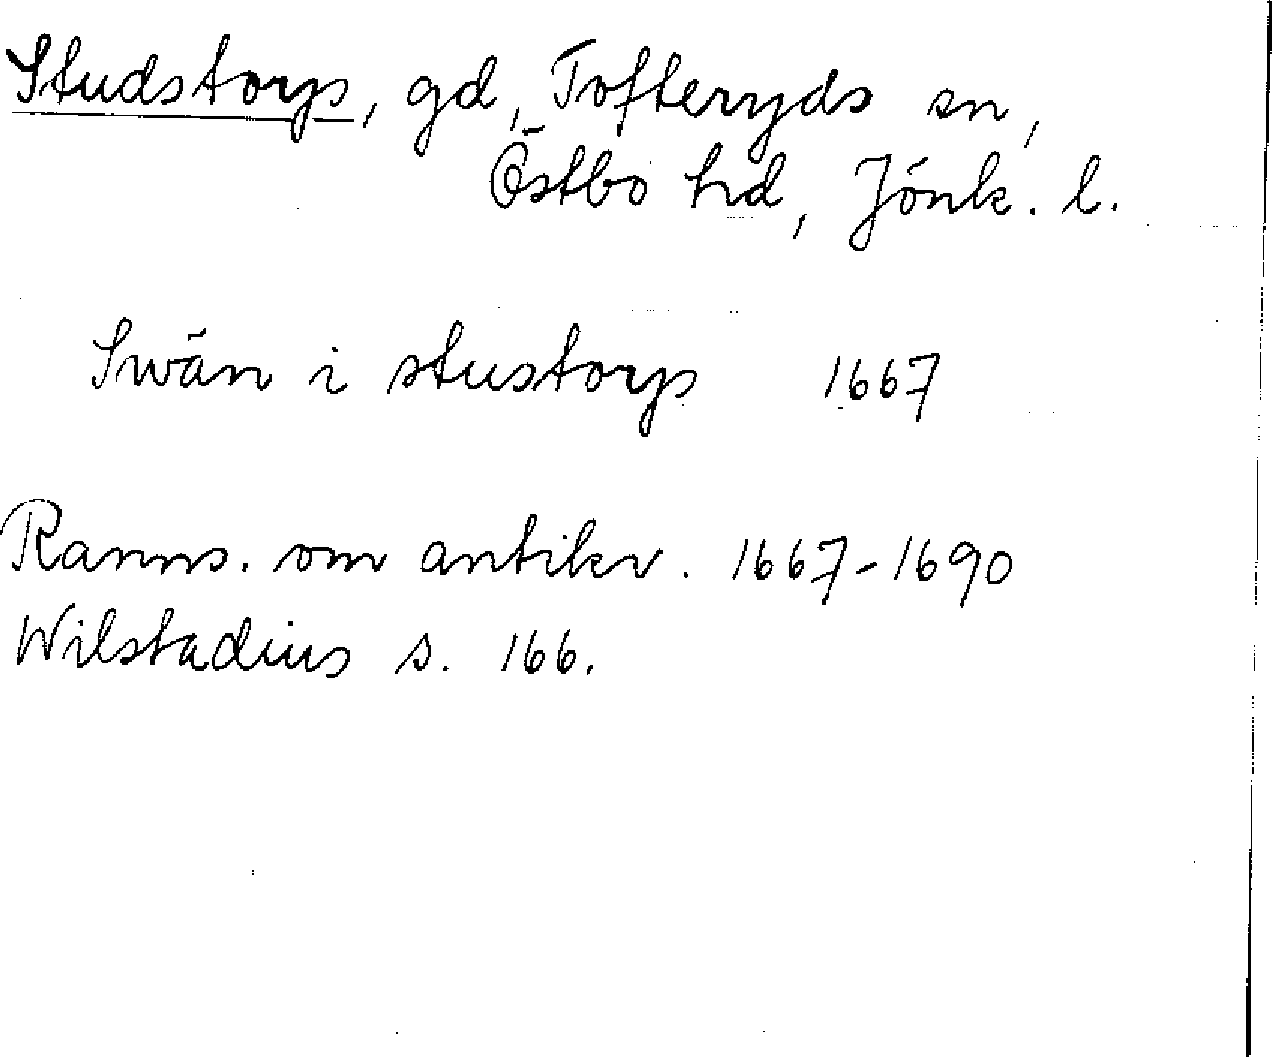 Studstorp, gd, Tofteryds sn,
Östbo hd, Jönk. l.
Swän i stustorp 1667
Ranns. om antikv. 1667-1690
Wilstadius s. 166.